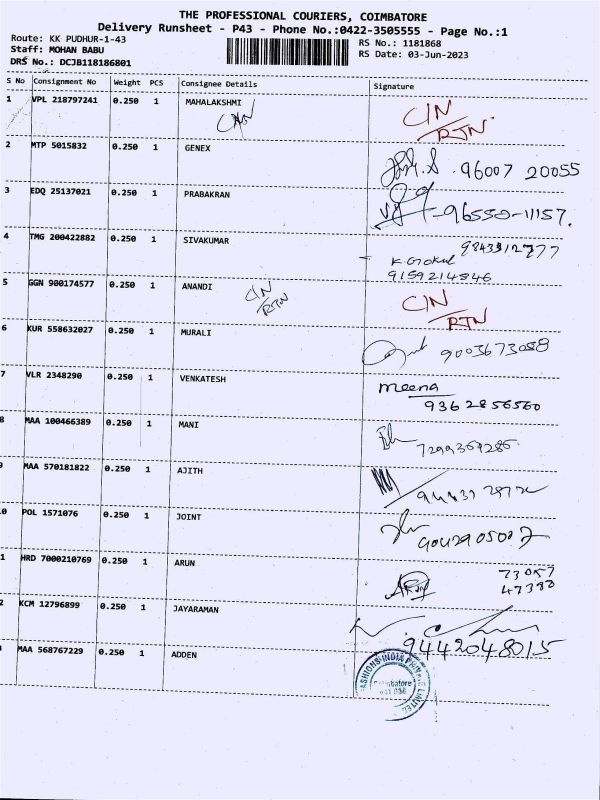 THE PROFESSIONAL COURIERS, COIMBATORE
Delivery Runsheet - P43 - Phone No.:0422-3505555 - Page No.:1
Route: KK PUDHUR-1-43 RS No.: 1181868
Staff: MOHAN BABU RS Date: 03-Jun-2023
DRS No.: DCJB118186801
S No Consignment No Weight PCS Consignee Details Signature
1 VPL 218797241 0.250 1 MAHALAKSHMI C/N
RTN
2 MTP 5015832 0.250 1 GENEX 96007 20055
3 EDQ 25137021 0.250 1 PRABAKRAN 96550-11157.
4 TMG 200422882 0.250 1 SIVAKUMAR 9843312777
K. Gokul
9159214546
5 GGN 900174577 0.250 1 ANANDI C/N RTN C/N
RTN
6 KUR 558632027 0.250 1 MURALI 9003673088
7 VLR 2348290 0.250 1 VENKATESH meena
9362856560
8 MAA 100466389 0.250 1 MANI
9 MAA 570181822 0.250 1 AJITH
0 POL 1571076 0.250 1 JOINT
1 HRD 7000210769 0.250 1 ARUN 73057
47380
2 KCM 12796899 0.250 1 JAYARAMAN
9442048015
MAA 568767229 0.250 1 ADDEN
FASHIONS INDIA PRIVATE LIMITED
Coimbatore